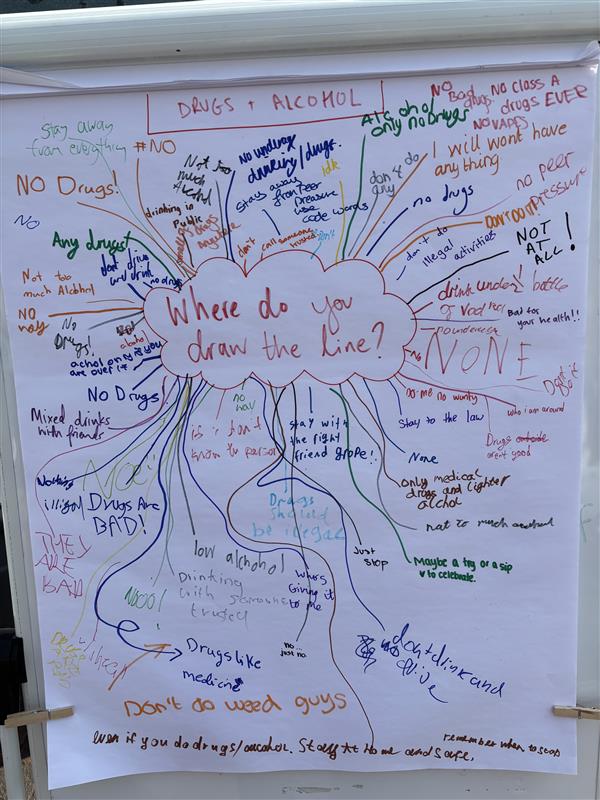 DRUGS + ALCOHOL
Where do you
draw the line?
Stay away
from everything
#NO
NO Drugs!
NO
Not too
much
Alcohol
drinking in
Public
No underage
drinking/drugs.
stay away
from Peer
Preasure
use
code words
Idk
Alcohol
only no Drugs
don't do
NO
Bad
drugs
NO class A
drugs EVER
NO VAPES
I will wont have
anything
no drugs
no peer
pressure
DONT DO IT!
don't do
illegal
activities
NOT
AT
ALL!
Any drugs!
dont drive
and drink
no drugs
don't
call someone
trusted
don't
Not too
much Alcohol
NO
way
No
Drugs!
achol only if you
are over 18
NO Drugs
Mixed drinks
with friends
drink under
Bad for
your health!!
NONE
Dont do
it
who i am around
no me no worry
Stay to the law
Drugs
arent good
None
only medical
drugs and lighter
alcohol
not to much alcohol
Maybe a try or a sip
to celebrate.
no
way
if i don't
know the person
stay with
the right
friend grope!!
Drugs
should
be illegal
Nothing
illigal
NO!!
Drugs Are
BAD!
THEY
ARE
BAD
low alchohol
Drinking
with someone
trusted
NOOO!
whos
Giving it
to me
Just
stop
no...
just no.
Drugs like
medicine
dont drink and
drive
Don't do weed guys
even if you do drugs/alcohol. Stay At Home and Safe.
remember when to stop